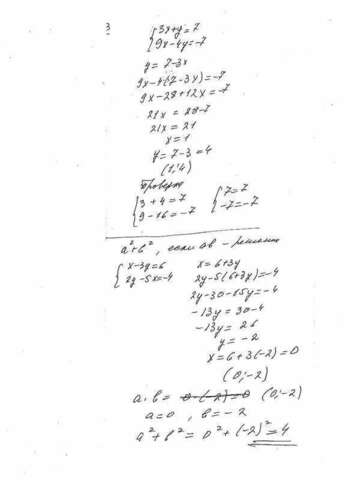 3
{3x+y=7
{9x-4y=-7
y=7-3x
9x-4(7-3x)=-7
9x-28+12x=-7
21x=28-7
21x=21
x=1
y=7-3=4
(1;4)
Проверка
{3+4=7 {7=7
{9-16=-7 {-7=-7
a²+b², если ab - решение
{x-3y=6 x=6+3y
{2y-5x=-4 2y-5(6+3y)=-4
2y-30-15y=-4
-13y=30-4
-13y=26
y=-2
x=6+3(-2)=0
(0;-2)
a·b= 0·(-2)=0 (0;-2)
a=0, b=-2
a²+b²=0²+(-2)²=4